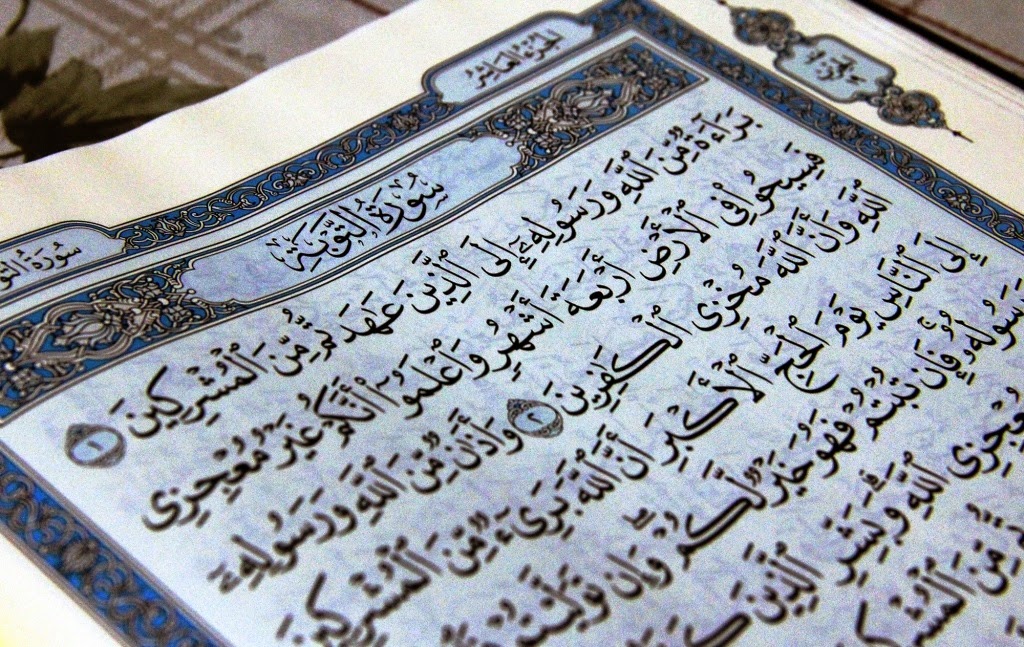 الجزء العاشر
سُورَةُ التو
سُورَةُ التَّوْبَةِ
بَرَآءَةٌ مِّنَ ٱللَّهِ وَرَسُولِهِۦٓ إِلَى ٱلَّذِينَ عَٰهَدتُّم مِّنَ ٱلْمُشْرِكِينَ ١
فَسِيحُوا۟ فِى ٱلْأَرْضِ أَرْبَعَةَ أَشْهُرٍ وَٱعْلَمُوٓا۟ أَنَّكُمْ غَيْرُ مُعْجِزِى
ٱللَّهِ وَأَنَّ ٱللَّهَ مُخْزِى ٱلْكَٰفِرِينَ ٢ وَأَذَٰنٌ مِّنَ ٱللَّهِ وَرَسُولِهِۦٓ
إِلَى ٱلنَّاسِ يَوْمَ ٱلْحَجِّ ٱلْأَكْبَرِ أَنَّ ٱللَّهَ بَرِىٓءٌ مِّنَ ٱلْمُشْرِكِينَ
وَرَسُولُهُۥ فَإِن تُبْتُمْ فَهُوَ خَيْرٌ لَّكُمْ وَإِن تَوَلَّيْتُمْ
مُعْجِزِى ٱللَّهِ وَبَشِّرِ ٱلَّذِينَ
مِّنَ ٱلْمُشْرِك